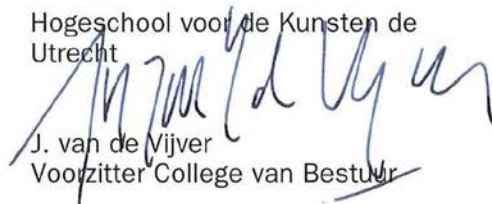 Hogeschool voor de Kunsten de
Utrecht
J. van de Vijver
Voorzitter College van Bestuur